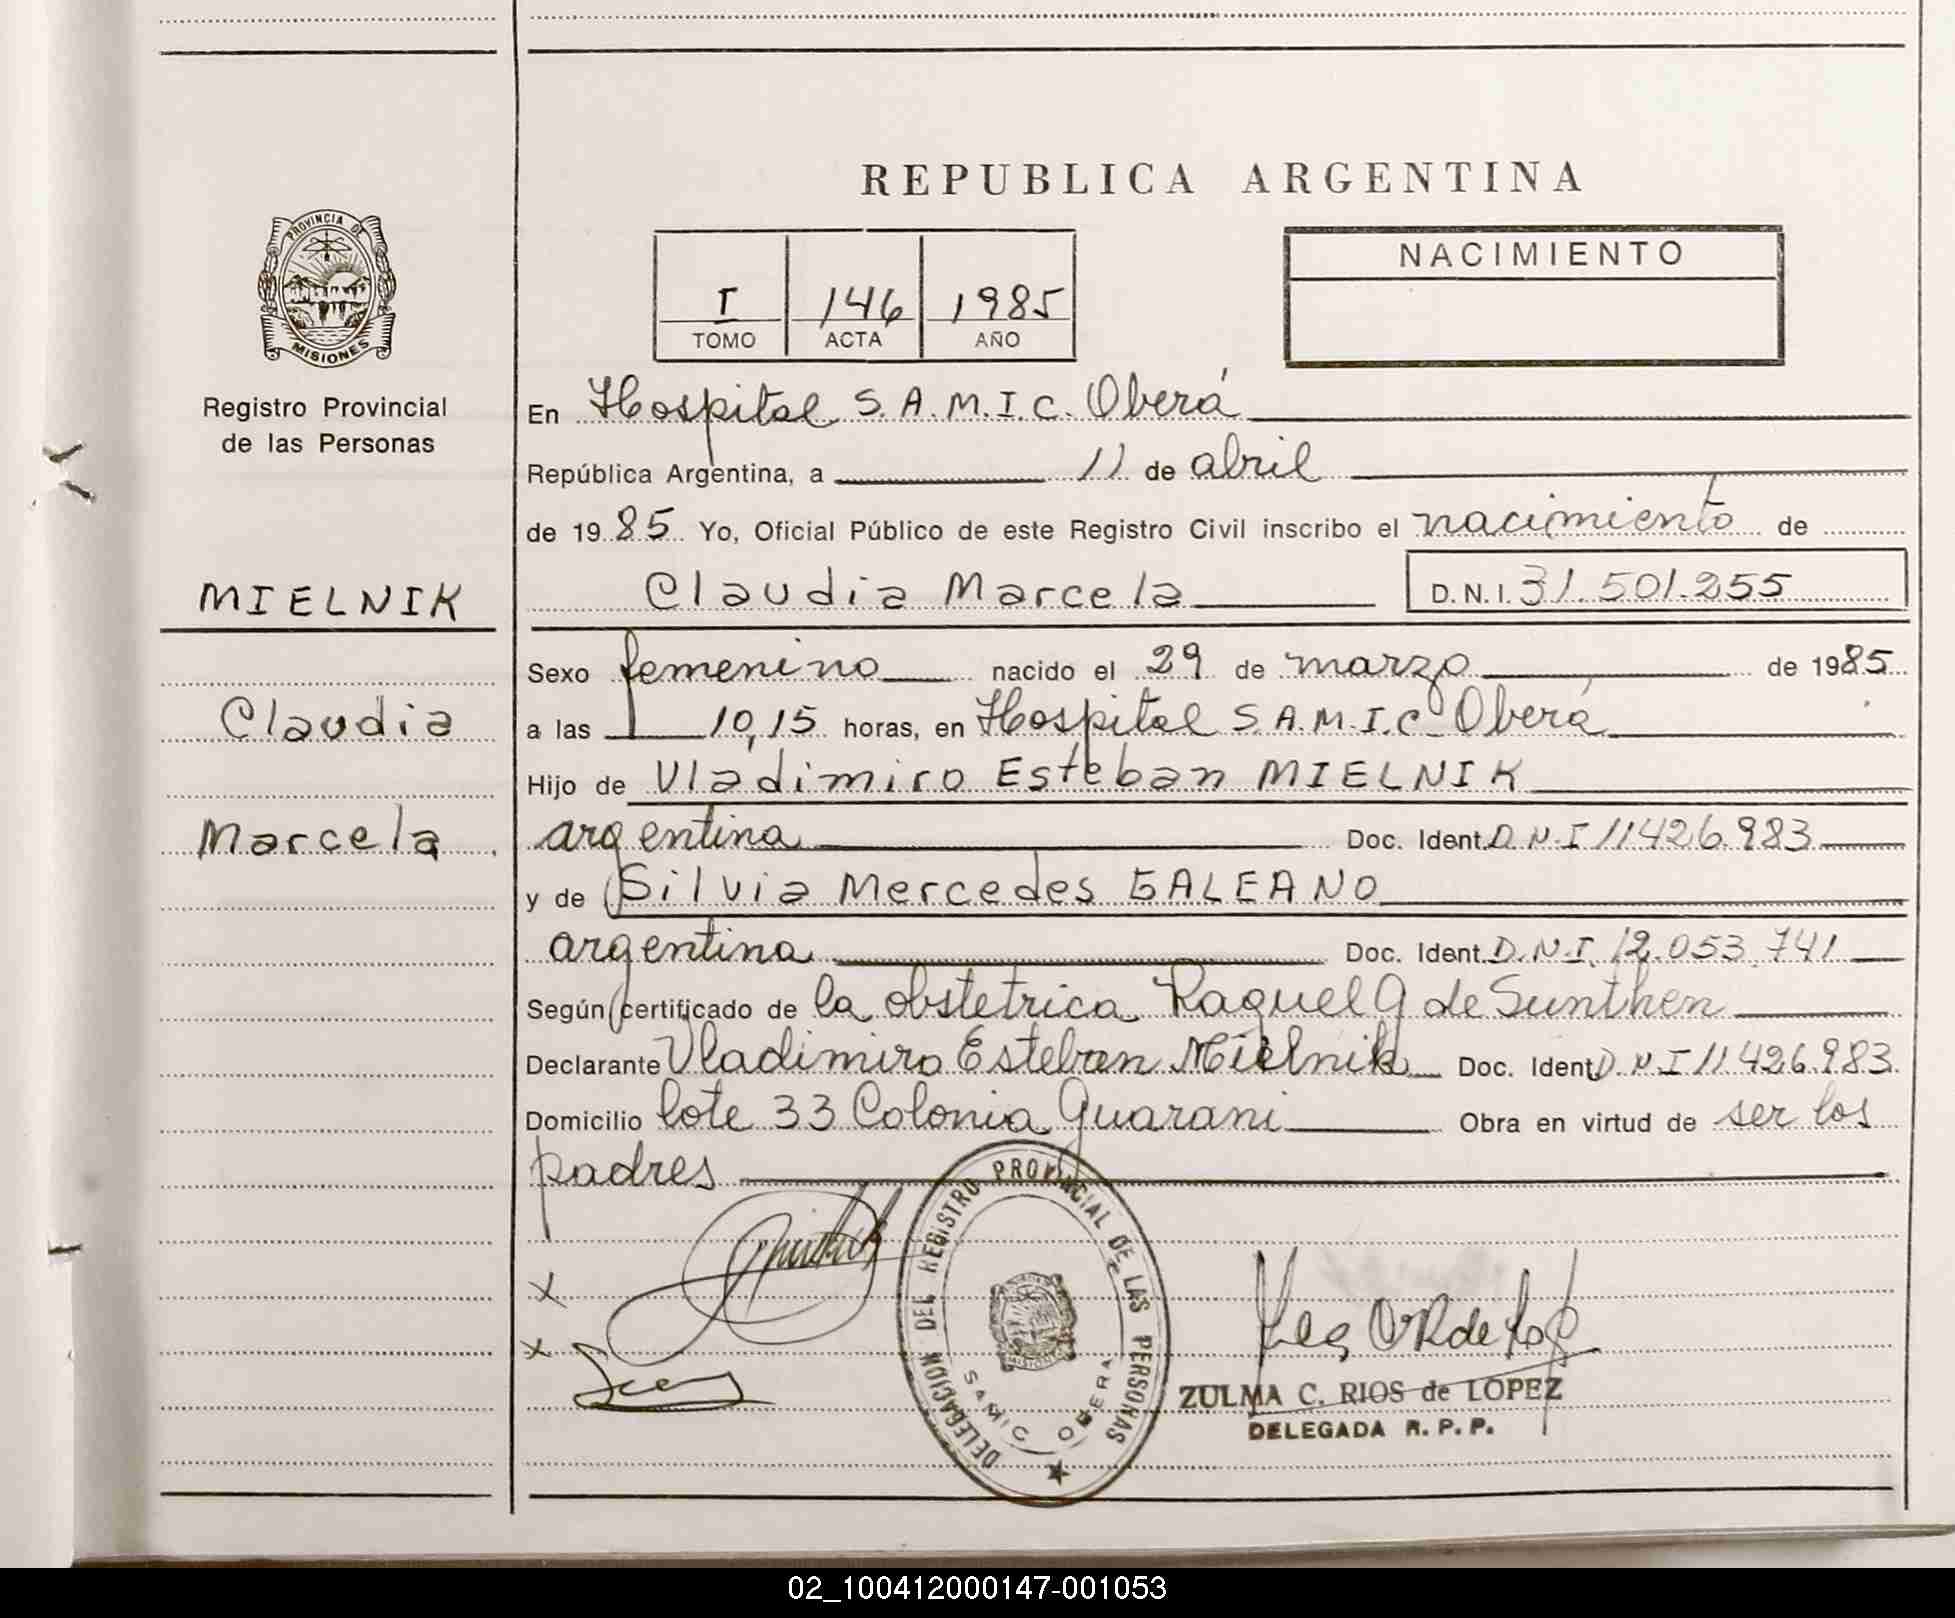 REPUBLICA ARGENTINA
PROVINCIA DE
MISIONES
Registro Provincial
de las Personas
MIELNIK
Claudia
Marcela
I 146 1985
TOMO ACTA AÑO
NACIMIENTO
En Hospital S.A.M.I.C. Oberá
República Argentina, a 11 de abril
de 1985 Yo, Oficial Público de este Registro Civil inscribo el nacimiento de
Claudia Marcela D.N.I. 31.501.255
Sexo femenino nacido el 29 de marzo de 1985
a las 10,15 horas, en Hospital S.A.M.I.C Oberá
Hijo de Vladimiro Esteban MIELNIK
argentina Doc. Ident. D.N.I 11426.983
y de Silvia Mercedes GALEANO
argentina Doc. Ident. D.N.I. 12.053.741
Según certificado de la obstetrica Raquel G de Sunthen
Declarante Vladimiro Esteban Mielnik Doc. Ident. D.N.I 11426.983
Domicilio lote 33 Colonia Guarani Obra en virtud de ser los
padres
x
x
DELEGACION DEL REGISTRO PROVINCIAL DE LAS PERSONAS
MISIONES
SAMIC OBERA
ZULMA C. RIOS de LOPEZ
DELEGADA R.P.P.
02_100412000147-001053